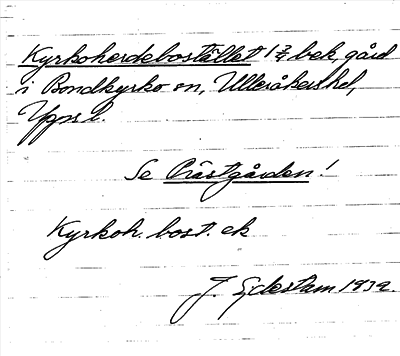 Kyrkoherdebostället 1 3/4 bek, gård
i Bondkyrko sn, Ulleråkers hd,
Upps l.
Se Prästgården!
Kyrkoh. bost. ek
J. Sjdestam 1939.